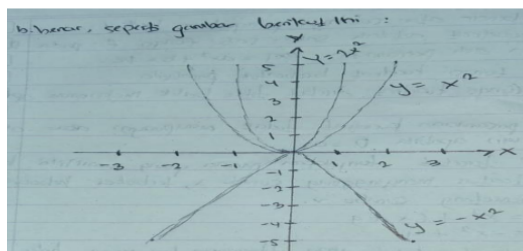 b. benar, seperti gambar berikut ini :
Y
y = 2x²
y = x²
5
4
3
2
1
-3 -2 -1 1 2 3 X
-1
-2
-3
-4
-5
y = -x²